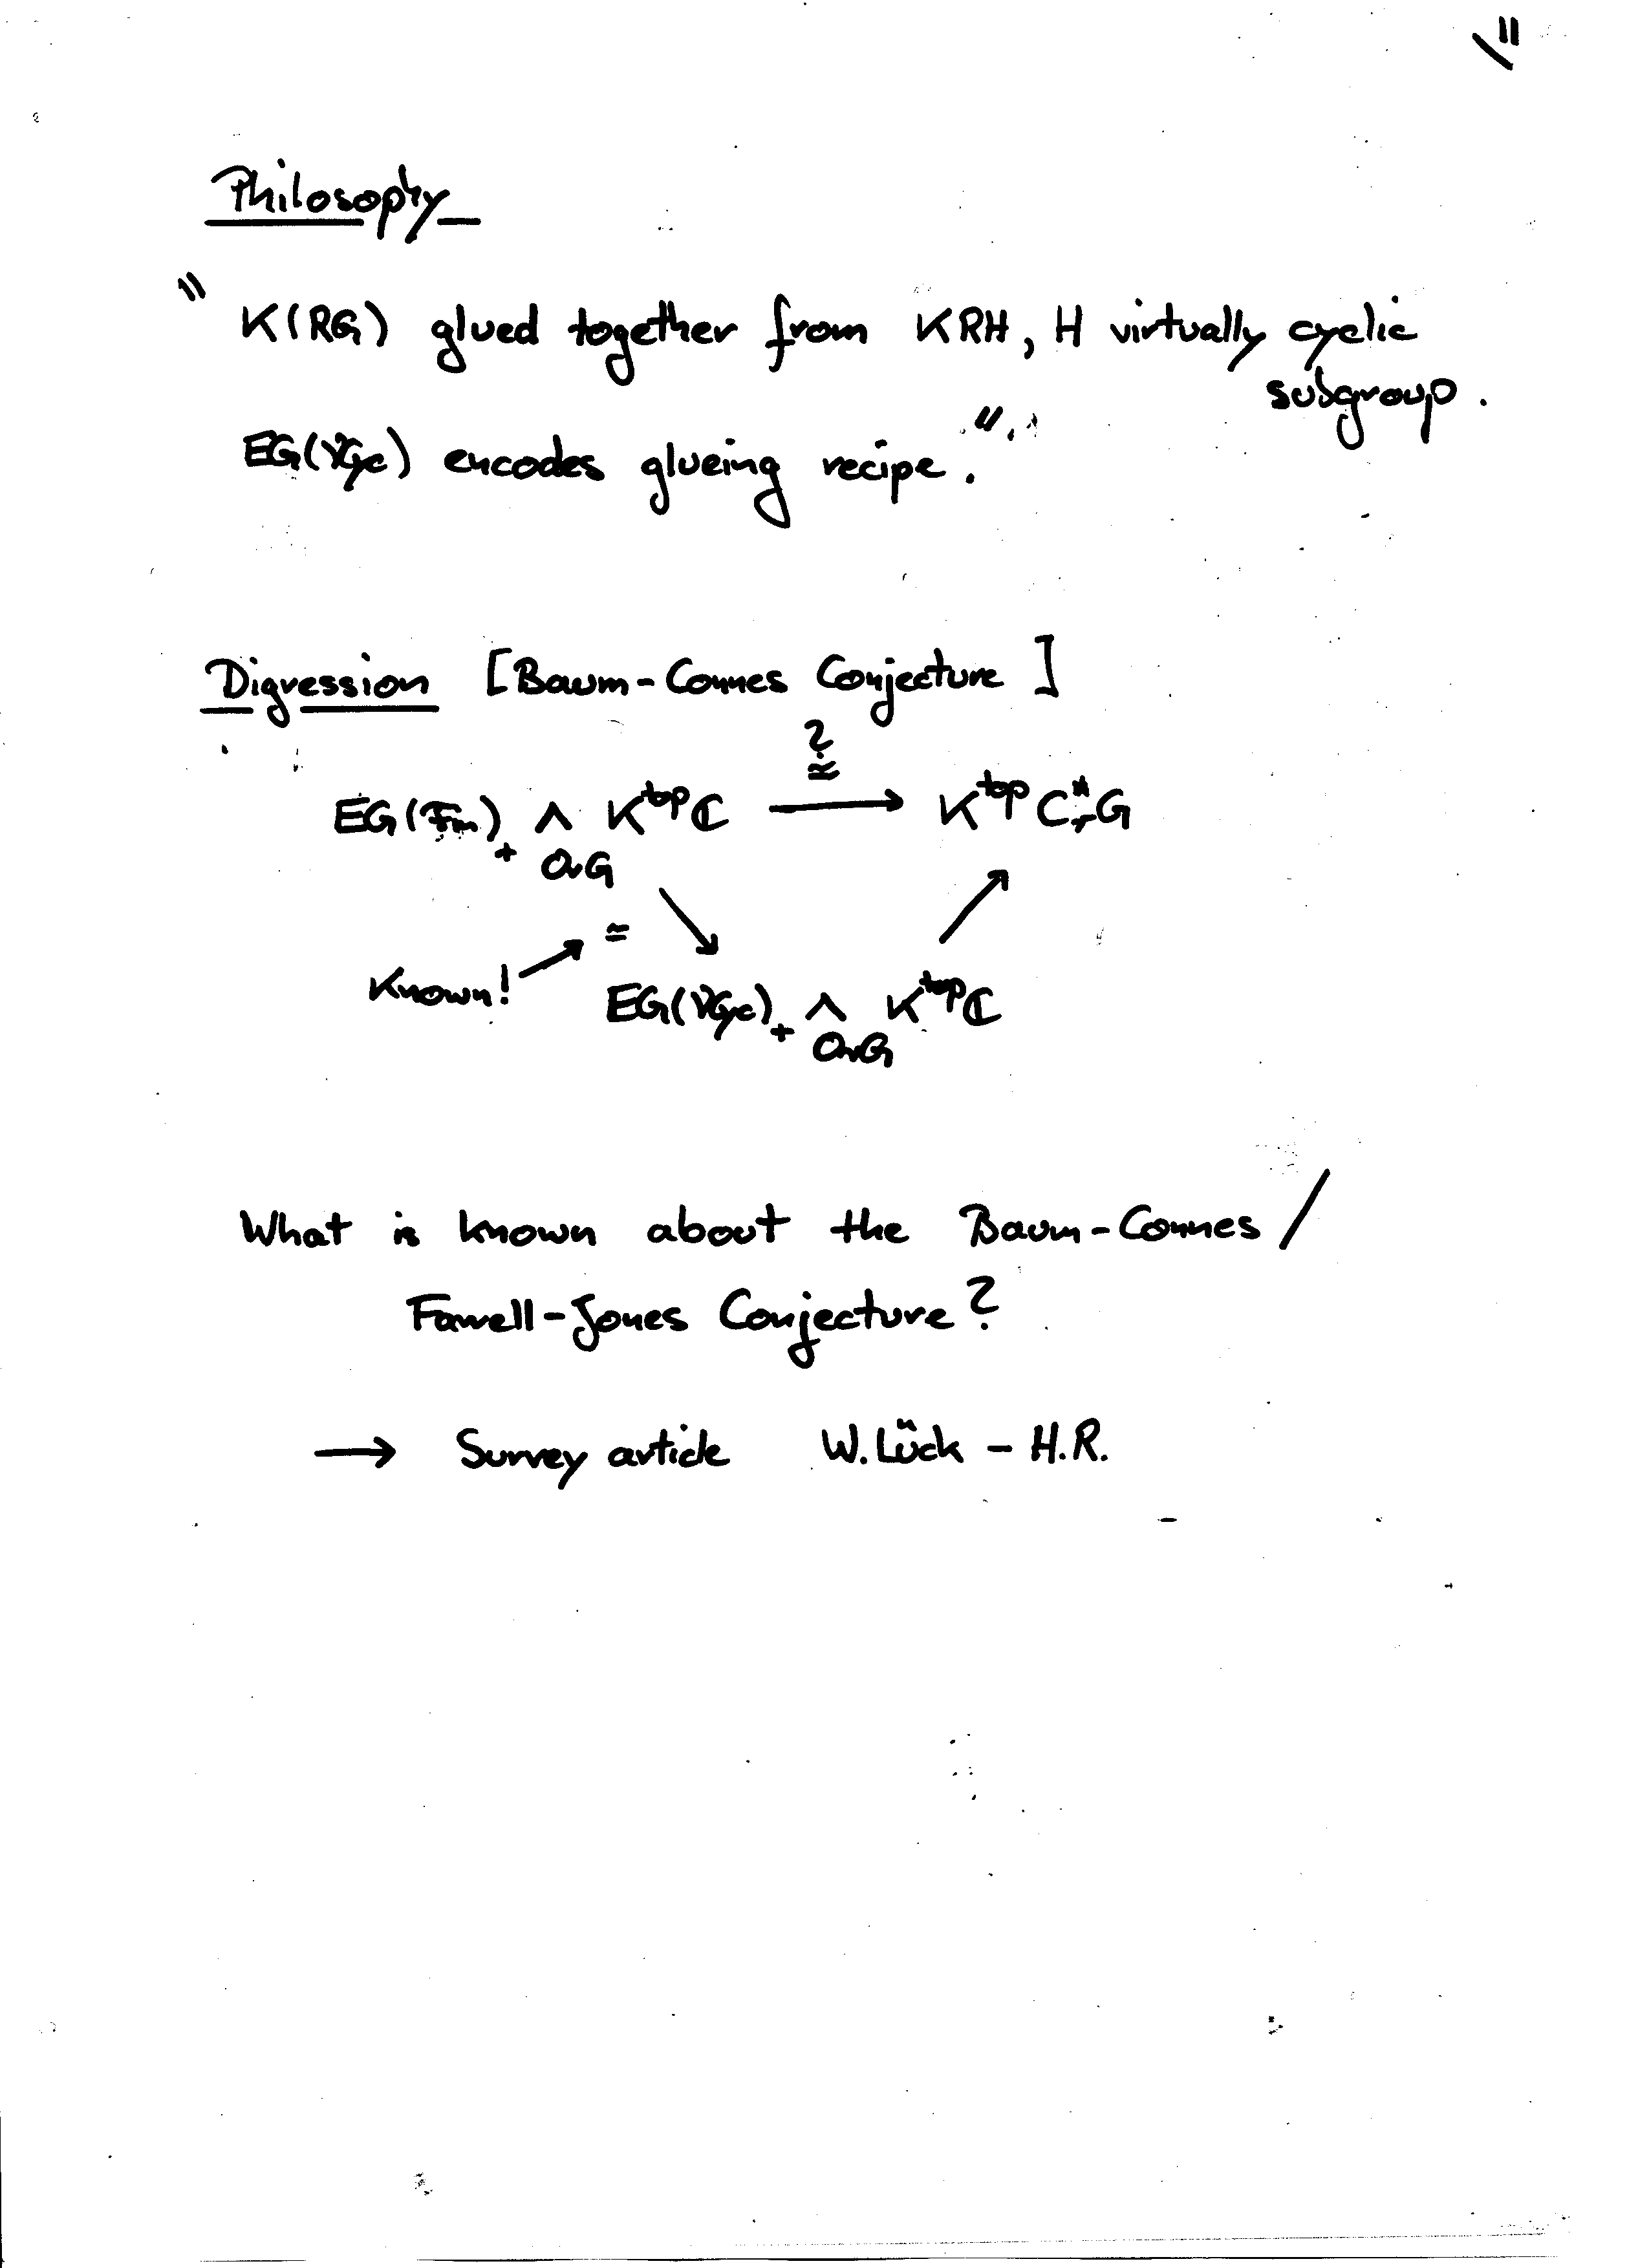 11
Philosophy
" K(RG) glued together from KRH, H virtually cyclic
subgroup.
EG(VCyc) encodes glueing recipe."
Digression [Baum-Connes Conjecture]
?
≃
EG(Fin)₊ ∧ K^top ℂ ⟶ K^top C*_r G
OrG
Known! ↗ ≃ ↘ ↗
EG(VCyc)₊ ∧ K^top ℂ
OrG
What is known about the Baum-Connes /
Farrell-Jones Conjecture?
→ Survey article W. Lück – H.R.